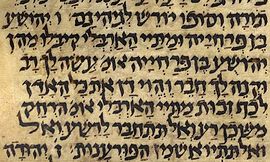 תורה וסופו יורש גיהינם : ו יהושע
בן פרחייה ומתיי הארבלי קיבלו מהן
יהושע בן פרחייה אומ' עשה לך רב
וקנה לך חבר והוי דן את כל האדן
לכף זכות מתיי הארבלי אומ' הרחק
משכן רע ואל תתחבר לרשע ואל
ואל תתייאש מן הפורענות : ז יהודה